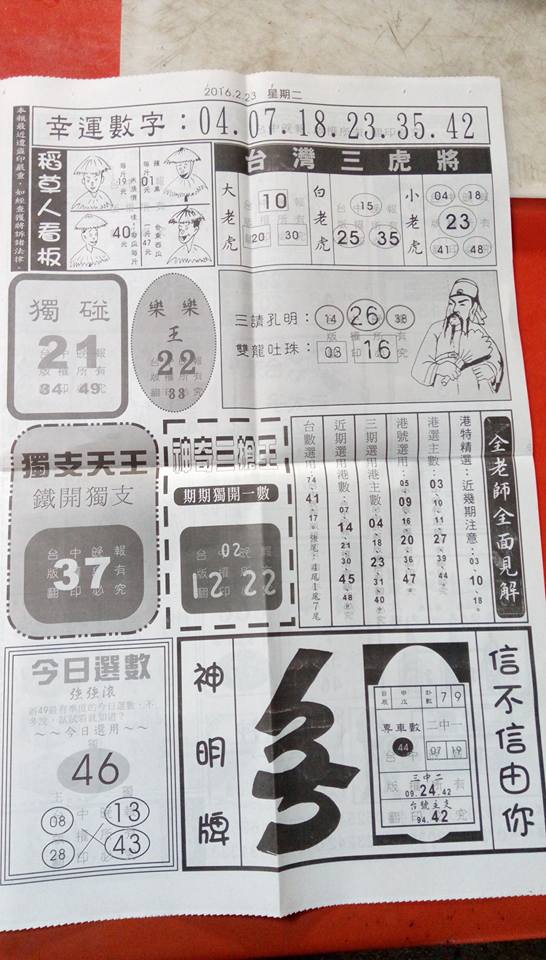 2016.2.23 星期二
幸運數字：04.07.18.23.35.42
本報最近遭盜印嚴重，如經查獲將訴諸法律。
稻草人看板
19
01
40元
47元
台灣三虎將
大老虎
10
20 30
白老虎
15
25 35
小老虎
04 18
23
41 48
獨碰
21
34 49
樂樂王
22
33
三請孔明：14 26 38
雙龍吐珠：03 16
獨支天王
鐵開獨支
37
神奇三搶王
期期獨開一數
02
12 22
全老師全面見解
港特精選：近幾期注意：03、10、18。
港選主數：03、10、20、39、44。
港號選用：05、09、16、27、36、47。
三期選用港數：04、18、23、31、40。
近期選用港數：07、14、21、30、45、48。
台數選用：74、41、17。強尾：4尾1尾7尾
今日選數
強強滾
~~今日選用~~
46
08 13
28 43
神明牌
信不信由你
日辰 甲戌 卦數 79
專車數 二中一
44 07 19
三中二
09.24.42
台號主支
94.42
台中晚報
版權所有
翻印必究